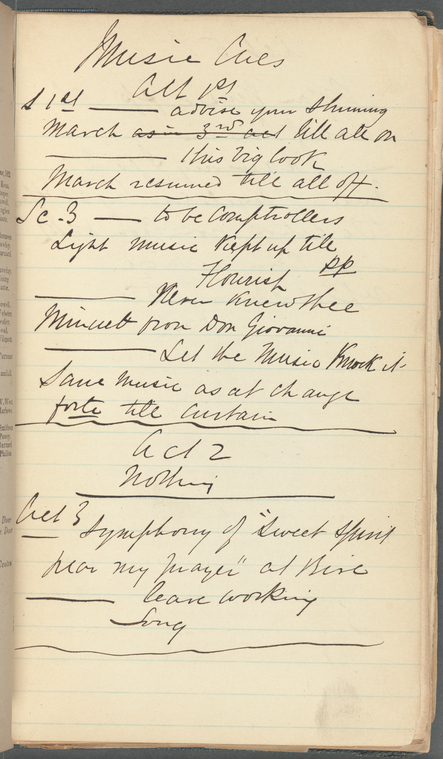 Music Cues
Act 1st
S 1st —— advise your shining
March as in 3rd act till all on
—— this big book
March resumed till all off.
Sc. 3 —— to be Comptrollers
Light music kept up till
Flourish pp
—— Never knew thee
Minuet from Don Giovanni
—— Let the Music Knock it
Same music as at change
forte till Curtain
Act 2
Nothing
Act 3
Symphony of "Sweet Spirit
hear my prayer" at Rise
—— leave working
Song